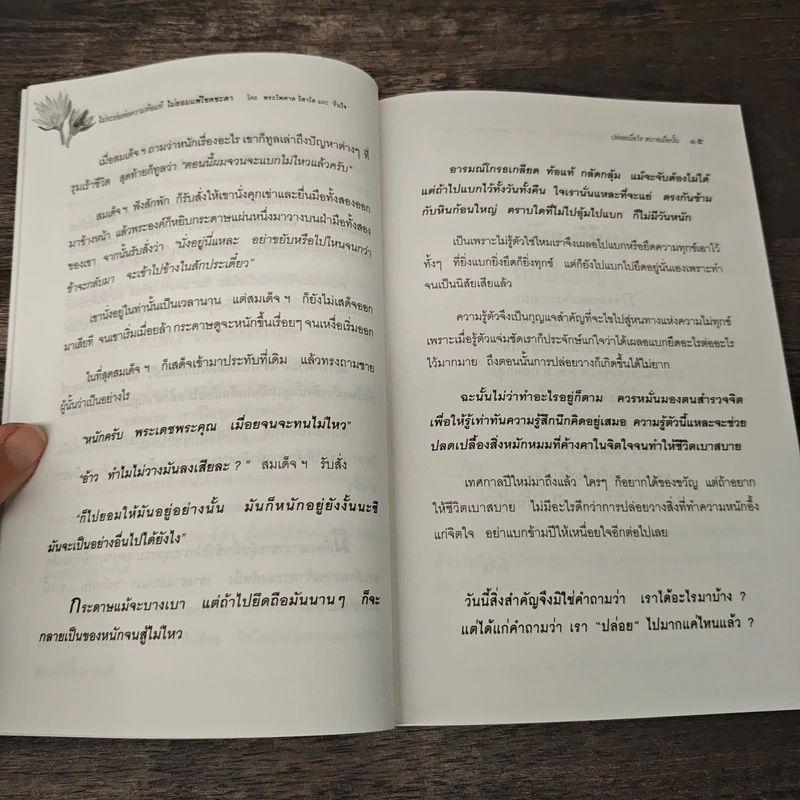 ไม่ระย่อต่อความพ่ายแพ้ ไม่ยอมแพ้โชคชะตา โดย พระไพศาล วิสาโล และ
เมื่อสมเด็จฯ ถามว่าหนักเรื่องอะไร เขาก็ทูลเล่าถึงปัญหาต่างๆ ที่
รุมเร้าชีวิต สุดท้ายก็ทูลว่า "ตอนนี้ผมจวนจะแบกไม่ไหวแล้วครับ"
สมเด็จฯ ฟังสักพัก ก็รับสั่งให้เขานั่งคุกเข่าและยื่นมือทั้งสองออก
มาข้างหน้า แล้วพระองค์ก็หยิบกระดาษแผ่นหนึ่งมาวางบนฝ่ามือทั้งสอง
ของเขา จากนั้นรับสั่งว่า "นั่งอยู่นี่แหละ อย่าขยับหรือไปไหนจนกว่า
ข้าจะกลับมา จะเข้าไปข้างในสักประเดี๋ยว"
เขานั่งอยู่ในท่านั้นเป็นเวลานาน แต่สมเด็จฯ ก็ยังไม่เสด็จออก
มาเสียที จนเขาเริ่มเมื่อยล้า กระดาษดูจะหนักขึ้นเรื่อยๆ จนเหงื่อเริ่มออก
ในที่สุดสมเด็จฯ ก็เสด็จเข้ามาประทับที่เดิม แล้วทรงถามชาย
ผู้นั้นว่าเป็นอย่างไร
"หนักครับ พระเดชพระคุณ เมื่อยจนจะทนไม่ไหว"
"อ้าว ทำไมไม่วางมันลงเสียละ ?" สมเด็จฯ รับสั่ง
"ก็ไปยอมให้มันอยู่อย่างนั้น มันก็หนักอยู่ยังงั้นนะซิ
มันจะเป็นอย่างอื่นไปได้ยังไง"
กระดาษแม้จะบางเบา แต่ถ้าไปยึดถือมันนานๆ ก็จะ
กลายเป็นของหนักจนสู้ไม่ไหว
ปล่อยเมื่อไร สบายเมื่อนั้น ๑๕
อารมณ์โกรธเกลียด ท้อแท้ กลัดกลุ้ม แม้จะจับต้องไม่ได้
แต่ถ้าไปแบกไว้ทั้งวันทั้งคืน ใจเรานั่นแหละที่จะแย่ ตรงกันข้าม
กับหินก้อนใหญ่ ตราบใดที่ไม่ไปอุ้มไปแบก ก็ไม่มีวันหนัก
เป็นเพราะไม่รู้ตัวใช่ไหมเราจึงเผลอไปแบกหรือยึดความทุกข์เอาไว้
ทั้งๆ ที่ยิ่งแบกยิ่งยึดก็ยิ่งทุกข์ แต่ก็ยังไปแบกไปยึดอยู่นั่นเองเพราะทำ
จนเป็นนิสัยเสียแล้ว
ความรู้ตัวจึงเป็นกุญแจสำคัญที่จะไขไปสู่หนทางแห่งความไม่ทุกข์
เพราะเมื่อรู้ตัวแจ่มชัดเราก็ประจักษ์แก่ใจว่าได้เผลอแบกยึดอะไรต่ออะไร
ไว้มากมาย ถึงตอนนั้นการปล่อยวางก็เกิดขึ้นได้ไม่ยาก
ฉะนั้นไม่ว่าทำอะไรอยู่ก็ตาม ควรหมั่นมองตนสำรวจจิต
เพื่อให้รู้เท่าทันความรู้สึกนึกคิดอยู่เสมอ ความรู้ตัวนี้แหละจะช่วย
ปลดเปลื้องสิ่งหมักหมมที่ค้างคาในจิตใจจนทำให้ชีวิตเบาสบาย
เทศกาลปีใหม่มาถึงแล้ว ใครๆ ก็อยากได้ของขวัญ แต่ถ้าอยาก
ให้ชีวิตเบาสบาย ไม่มีอะไรดีกว่าการปล่อยวางสิ่งที่ทำความหนักอึ้ง
แก่จิตใจ อย่าแบกข้ามปีให้เหนื่อยใจอีกต่อไปเลย
วันนี้สิ่งสำคัญจึงมิใช่คำถามว่า เราได้อะไรมาบ้าง ?
แต่ได้แก่คำถามว่า เรา "ปล่อย" ไปมากแค่ไหนแล้ว ?